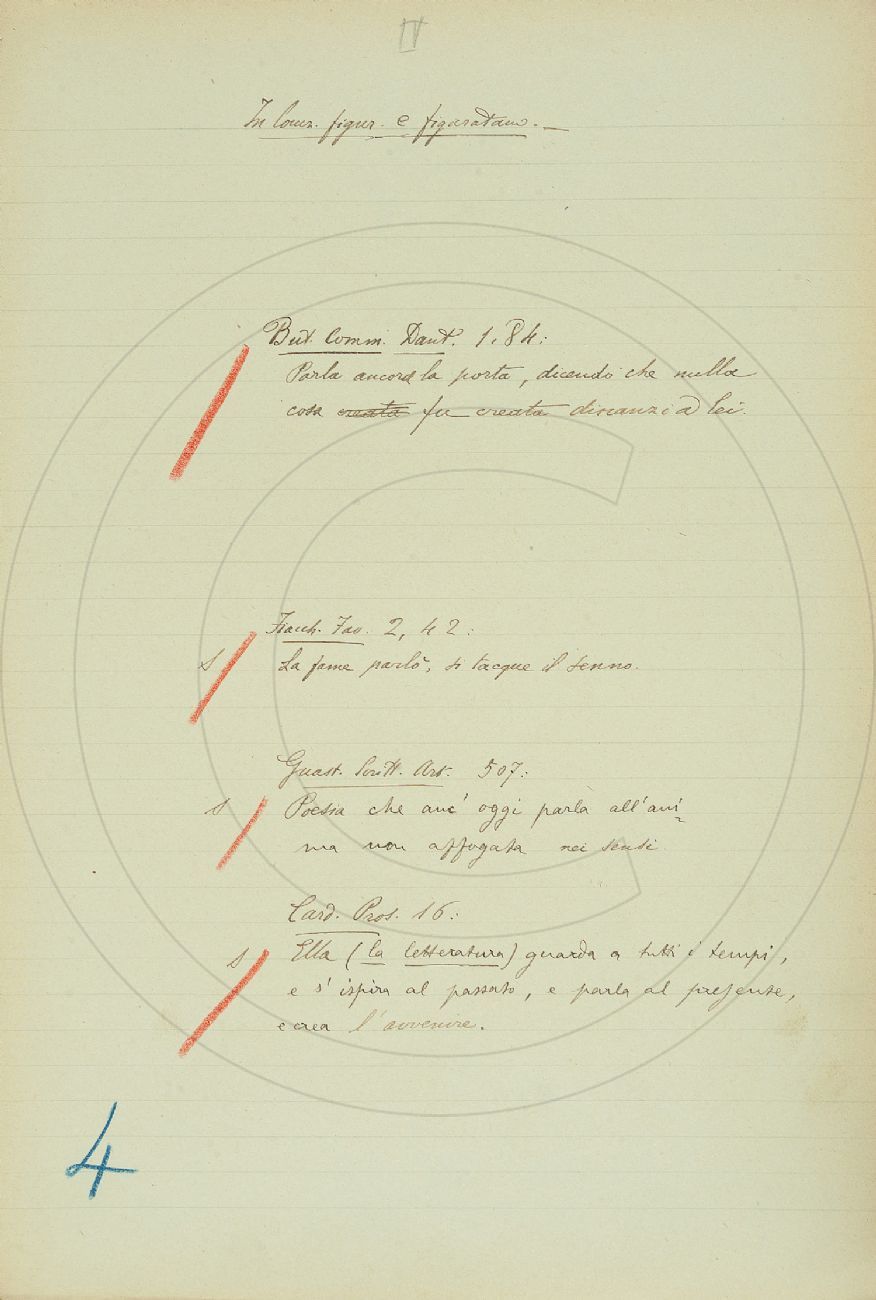 IV
In locuz. figur. e figuratam. —
But. Comm. Dant. 1, 84:
Parla ancora la porta, dicendo che nulla
cosa creata fu creata dinanzi a lei.
Fiacch. Fav. 2, 42:
s La fame parlò, si tacque il senno.
Guast. Scritt. Art. 507:
s Poesia che anc' oggi parla all'ani-
ma non affogata nei sensi
Card. Pros. 16:
s Ella (la letteratura) guarda a tutti i tempi,
e s' ispira al passato, e parla al presente,
e crea l'avvenire.
4